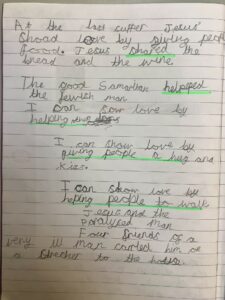 At the last cuffer Jesus'
Shoad love by giving peopl
Jesus shared the
bread and the wine
The good Samaritan helpped
the Jewish man
I can sow love by
helping
I can show love by
giving people a hug and
Kiss.
I can show love by
heping people to walk
Jesus and the
Paralysed man
Four friends of a
very ill man carried him on
a strecher to the house.